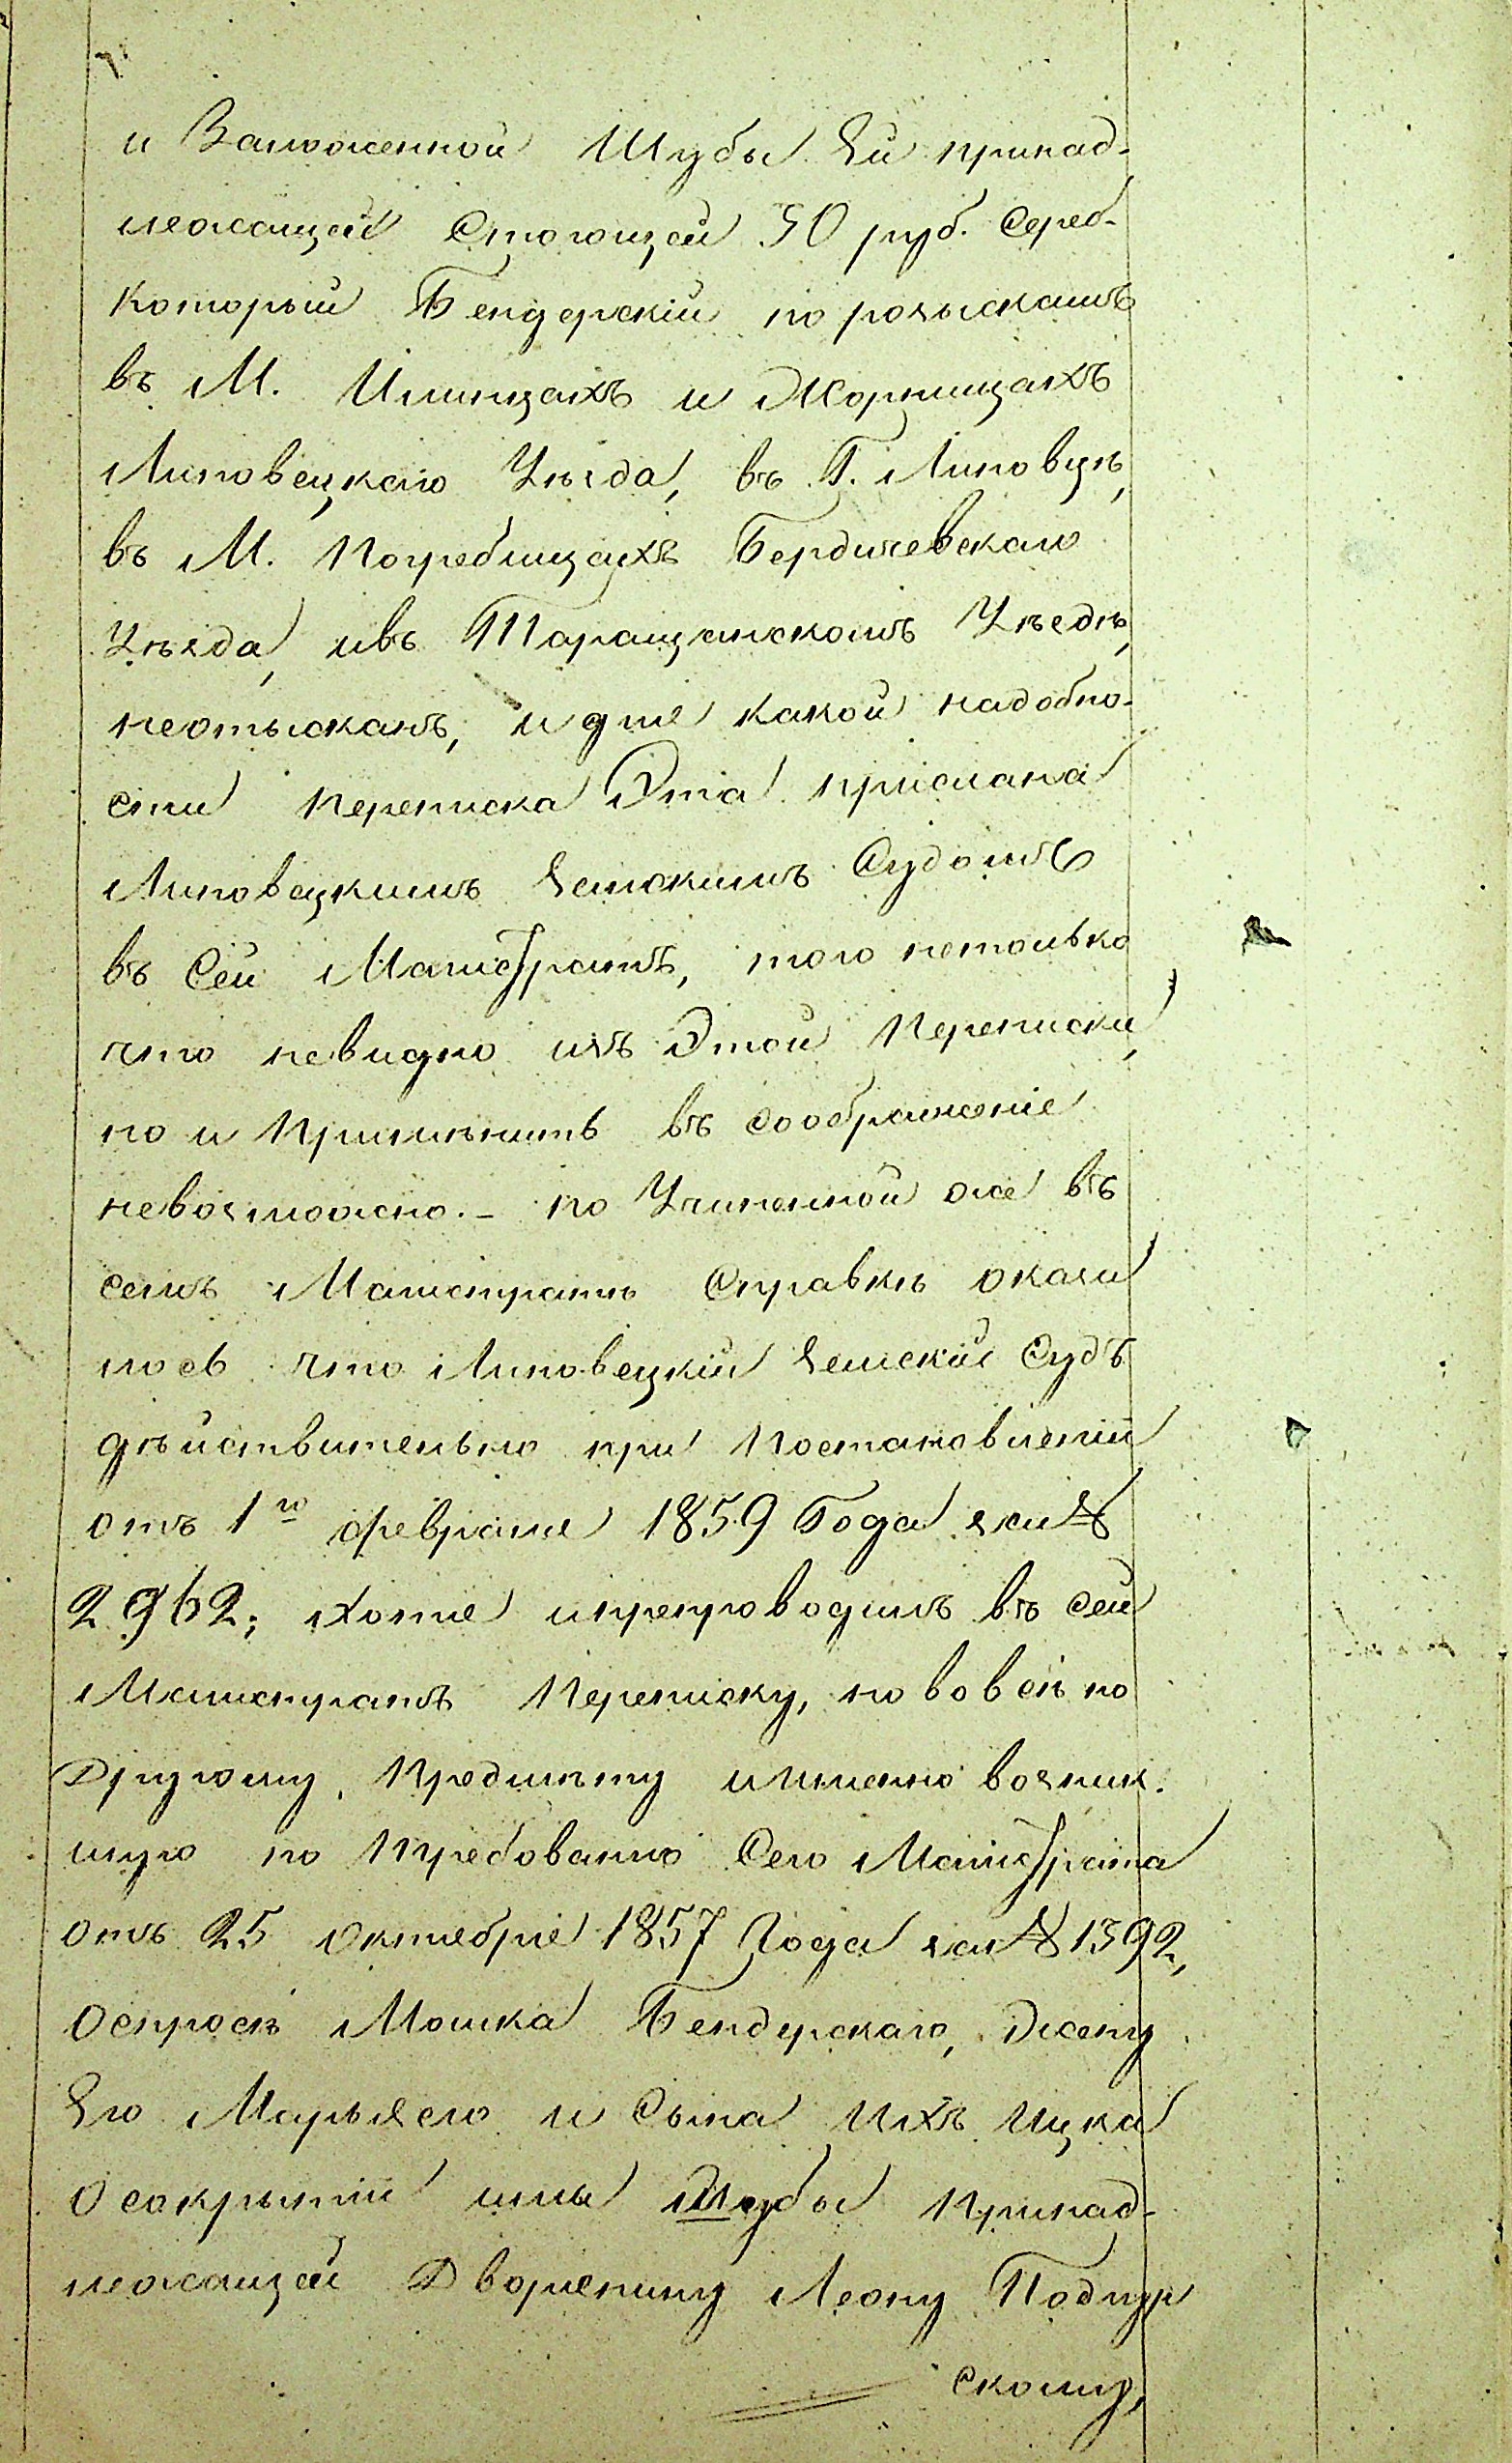 и Заложенной Шубы Ей принад-
лежащей Стоющей 50 руб. Сереб-
который Бендерскій по розыскамъ
въ М. Илинцахъ и Жорнищахъ
Липовецкаго Уѣзда, въ Г. Липовцѣ,
въ М. Погребищахъ Бердичевскаго
Уѣзда, ивъ Таращанскомъ Уѣздѣ,
неотысканъ, и для какой надобно-
сти переписка Эта прислана
Липовецкимъ Земскимъ Судомъ
въ Сей Магистратъ, того нетолько
что невидно изъ Этой Переписки,
но и Примѣнить въ сообраменіе
невозможно. - по Учиненной же въ
семъ Магистратѣ Справкѣ оказа
лось что Липовецкій Земскій Судъ
дѣйствительно при Постановленіи
отъ 1го февраля 1859 Года за №
2962; хотя ипрепроводилъ въ сей
Магистратъ Переписку, но вовсѣ по
Другому Предмѣту имѣнно возник-
шую по Требованію Сего Магистрата
отъ 25 Октебря 1857 Года за № 1392,
Оспросѣ Мошка Бендерскаго, Жену
Его Марьясю и Сына Ихъ Ицка
Осокрытіи ими Шубы Принад-
лежащей Дворянину Леону Подгур
скому,